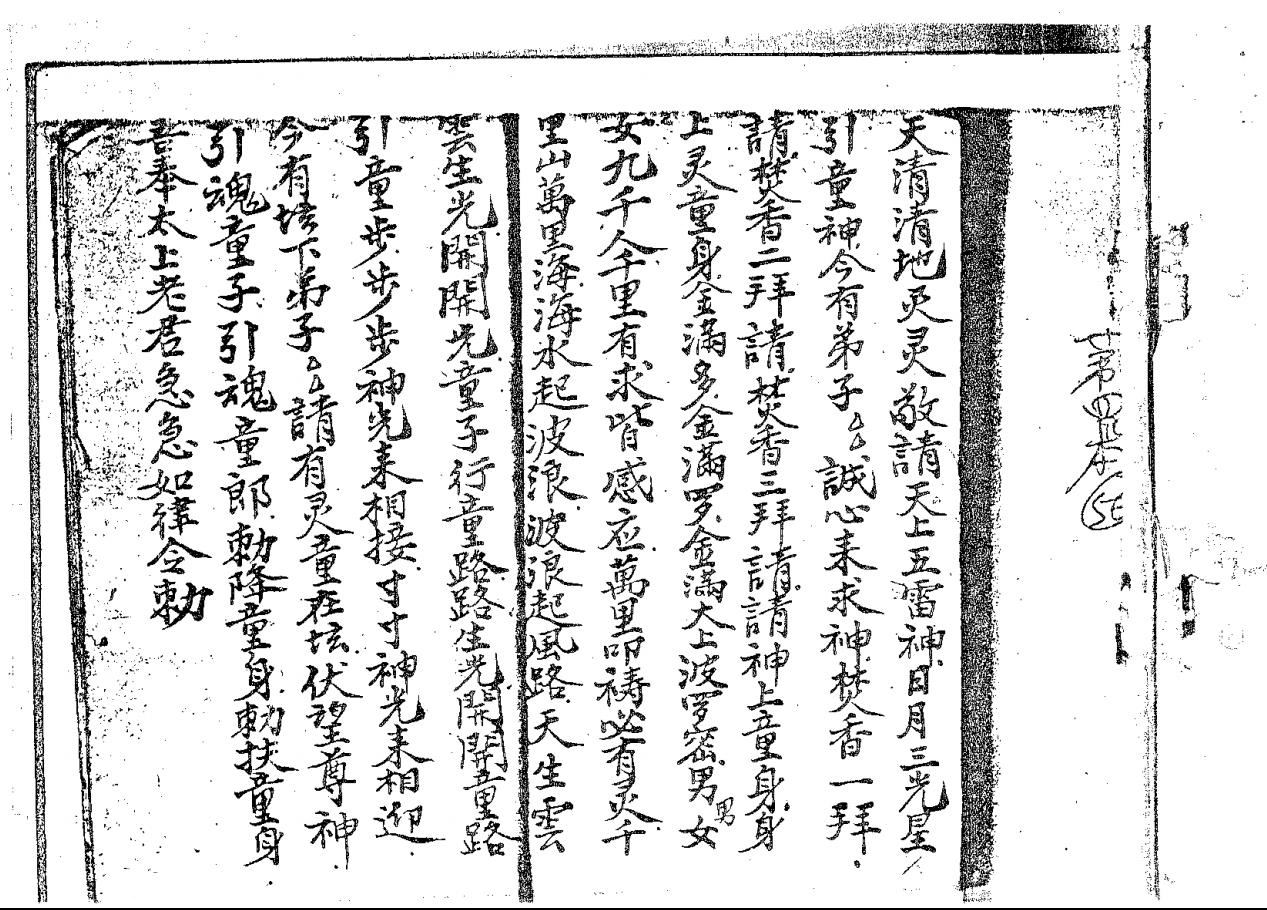 第四本(5E
天清清地灵灵敬請天上五雷神日月三光星
引童神今有弟子△△誠心来求神焚香一拜
請焚香二拜請焚香三拜請請神上童身身
上灵童身金滿多金滿罗金滿大上波罗密男男女
女九千人千里有求皆感应萬里叩祷必有灵千
里山萬里海海水起波浪波浪起風路天生雲
雲生光開開光童子行童路路生光開開童路
引童步步步神光来相接寸寸神光来相迎
今有坛下弟子△△請有灵童在坛伏望尊神
引魂童子引魂童郎勅降童身勅扶童身
吾奉太上老君急急如律令勅